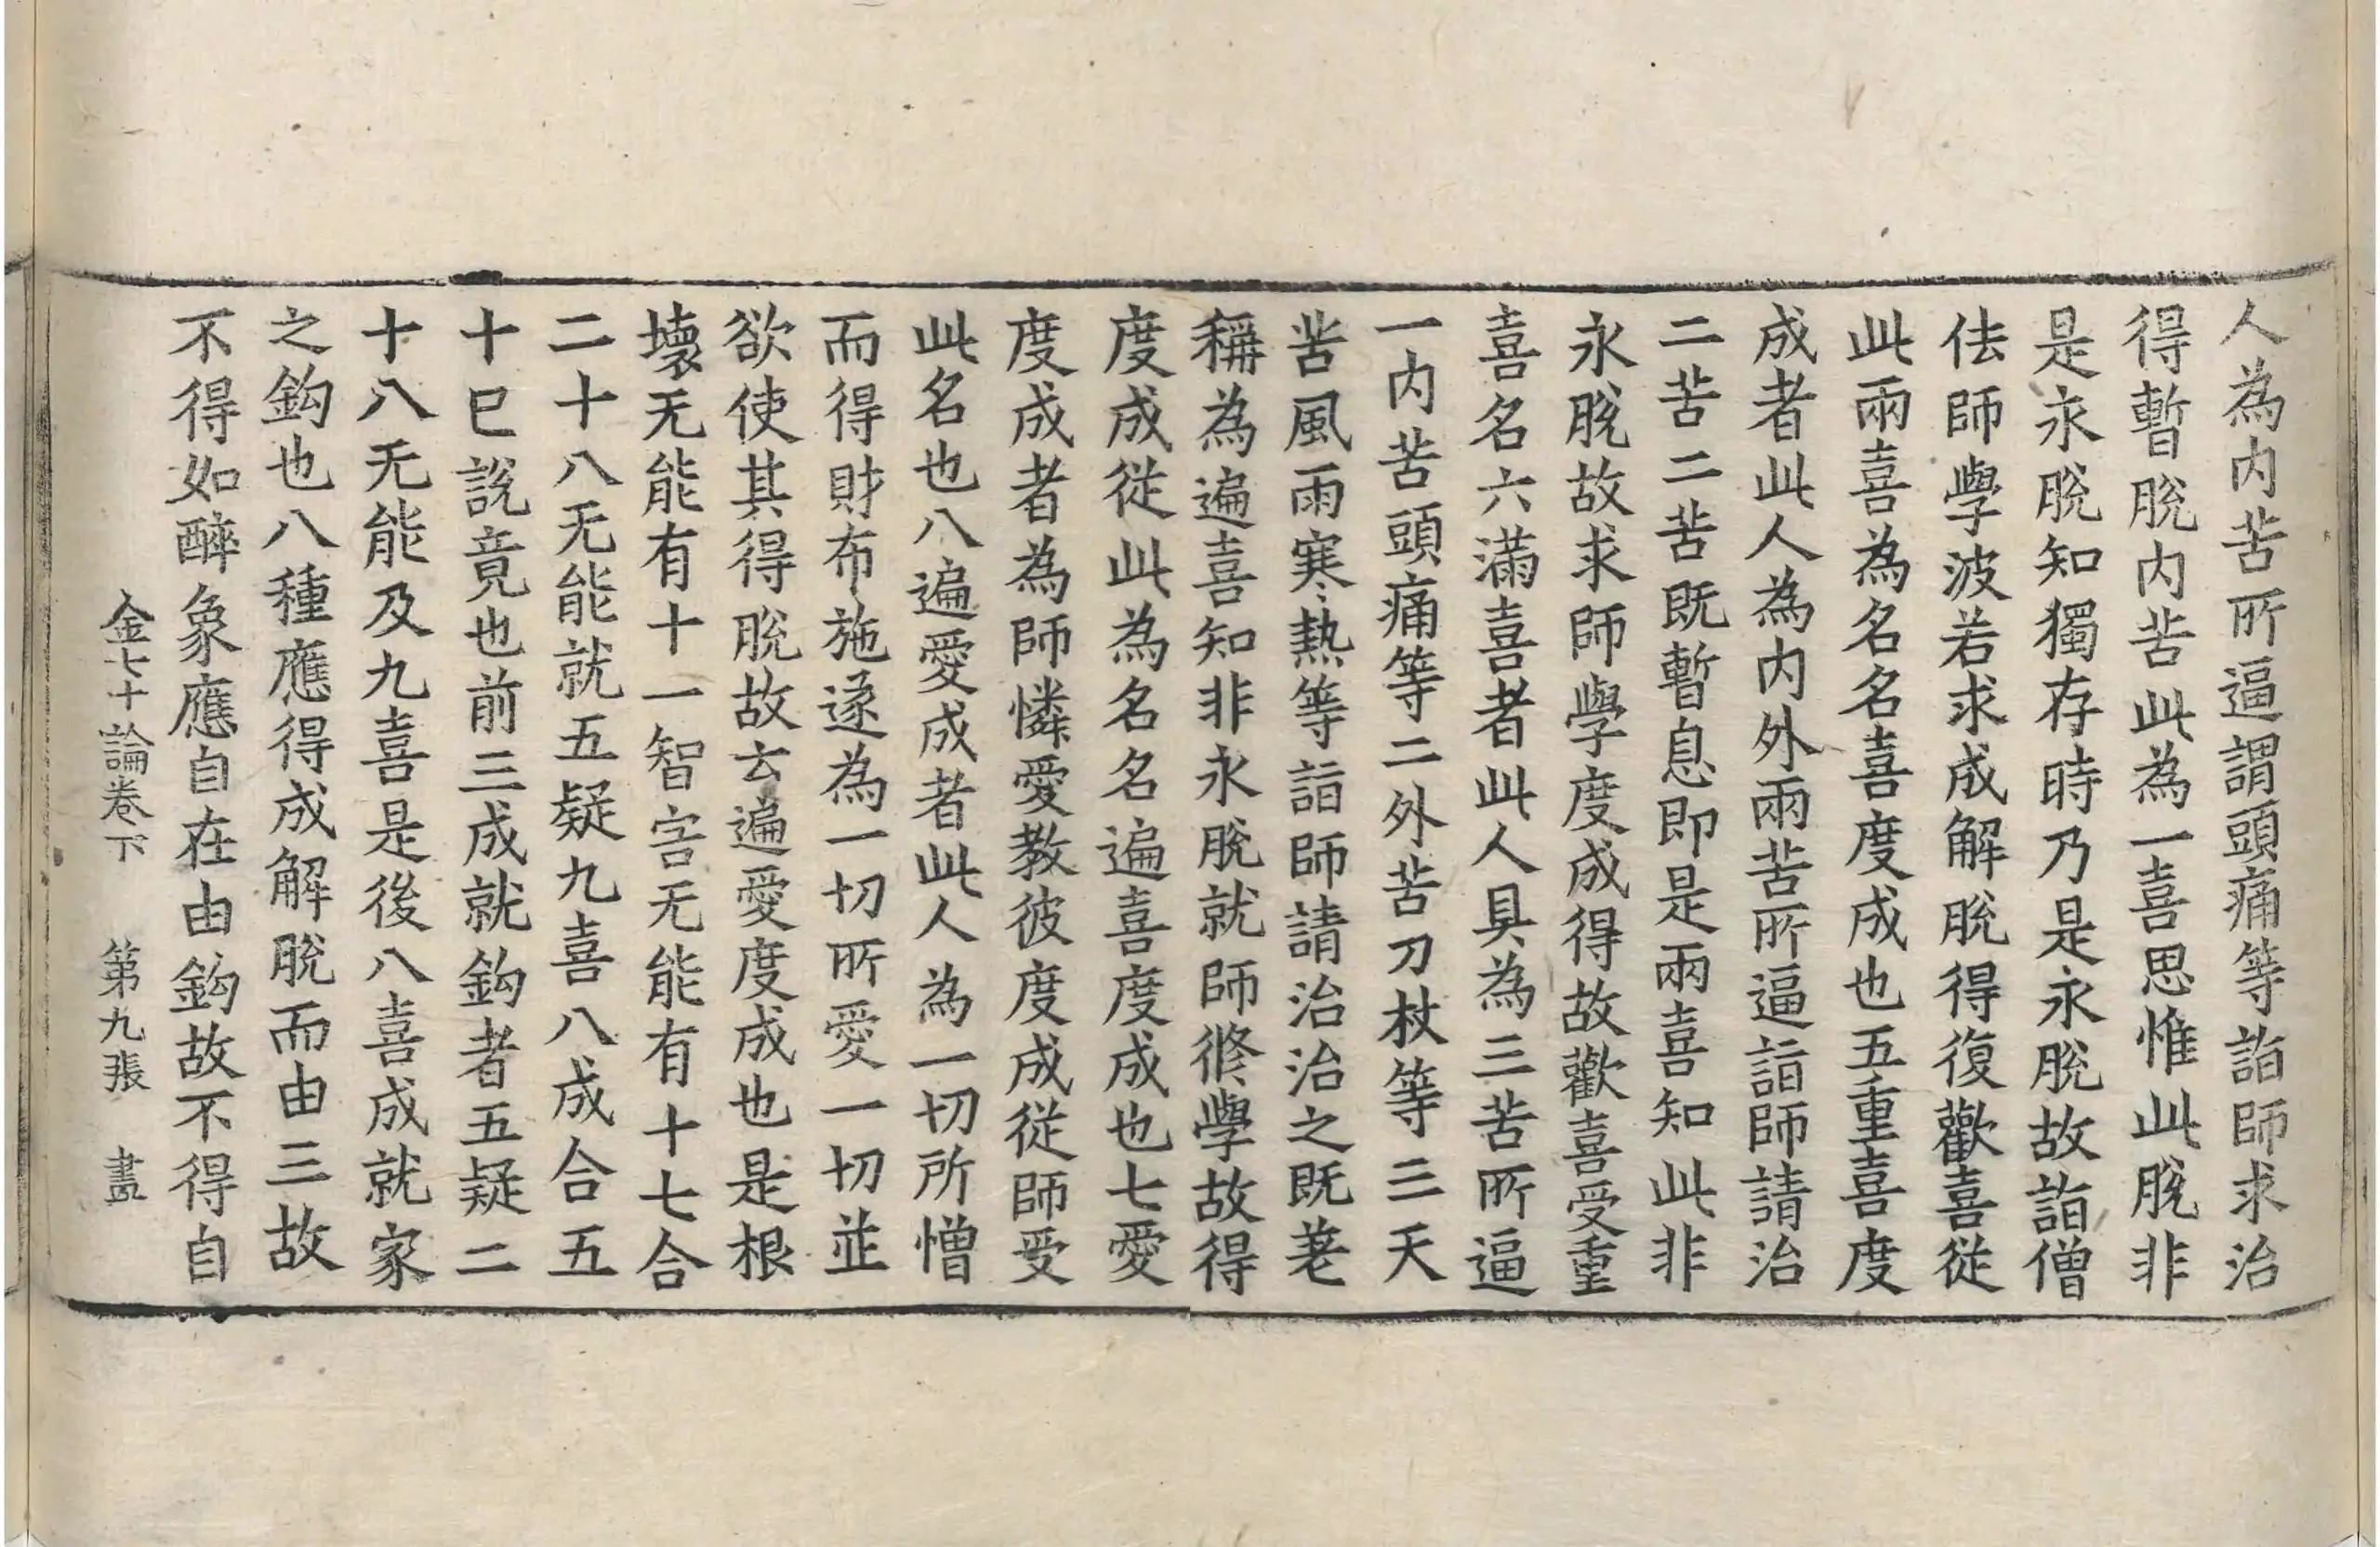 人為内苦所逼謂頭痛等詣師求治
得暫脫内苦此為一喜思惟此脫非
是永脫知獨存時乃是永脫故詣僧
佉師學波若求成解脫得復歡喜從
此兩喜為名名喜度成也五重喜度
成者此人為内外兩苦所逼詣師請治
二苦二苦既暫息即是兩喜知此非
永脫故求師學度成得故歡喜受重
喜名六滿喜者此人具為三苦所逼
一内苦頭痛等二外苦刀杖等三天
苦風雨寒熱等詣師請治治之既差
稱為遍喜知非永脫就師修學故得
度成從此為名名遍喜度成也七愛
度成者為師憐愛教彼度成從師受
此名也八遍愛成者此人為一切所憎
而得財布施遂為一切所愛一切並
欲使其得脫故云遍愛度成也是根
壞无能有十一智害无能有十七合
二十八无能就五疑九喜八成合五
十已說竟也前三成就鈎者五疑二
十八无能及九喜是後八喜成就家
之鈎也八種應得成解脫而由三故
不得如醉象應自在由鈎故不得自
金七十論卷下　第九張　晝